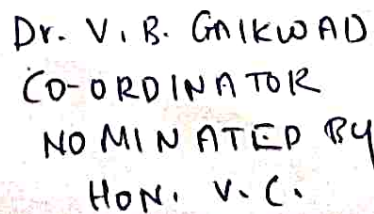 Dr. V. B. GAIKWAD
CO-ORDINATOR
NOMINATED BY
HON. V. C.